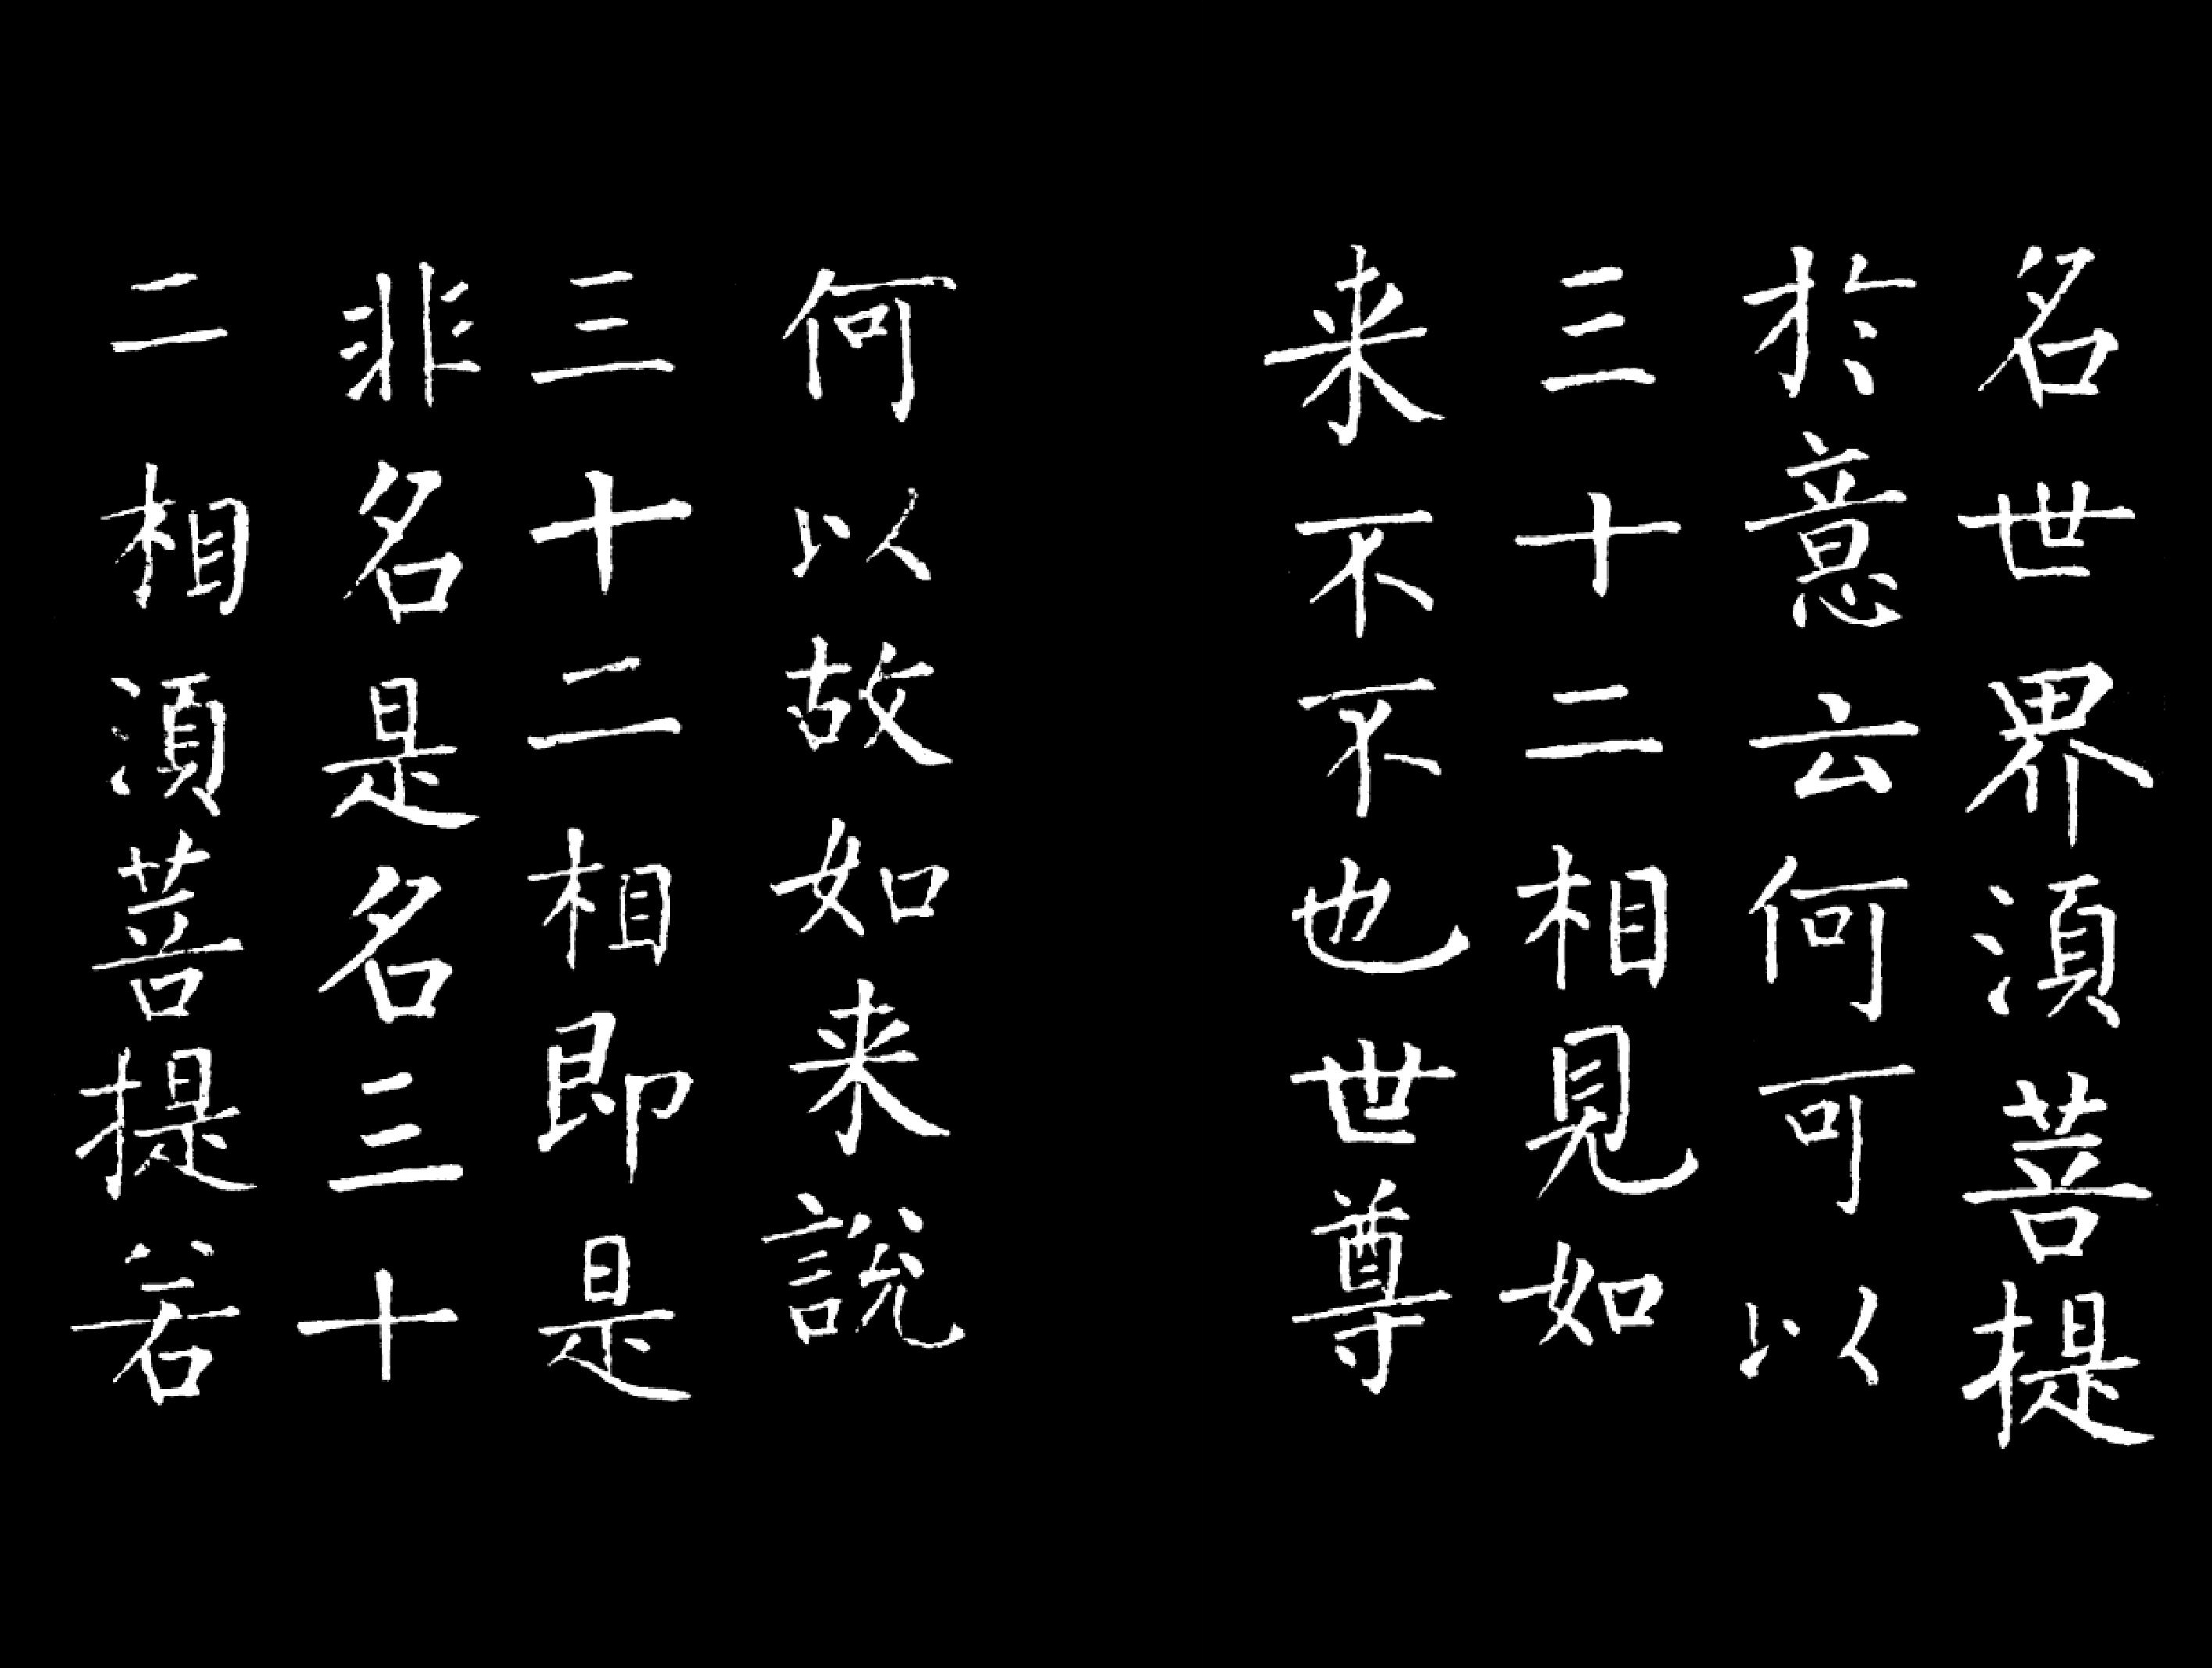 名世界須菩提
於意云何可以
三十二相見如
来不不也世尊
何以故如来說
三十二相即是
非名是名三十
二相須菩提若